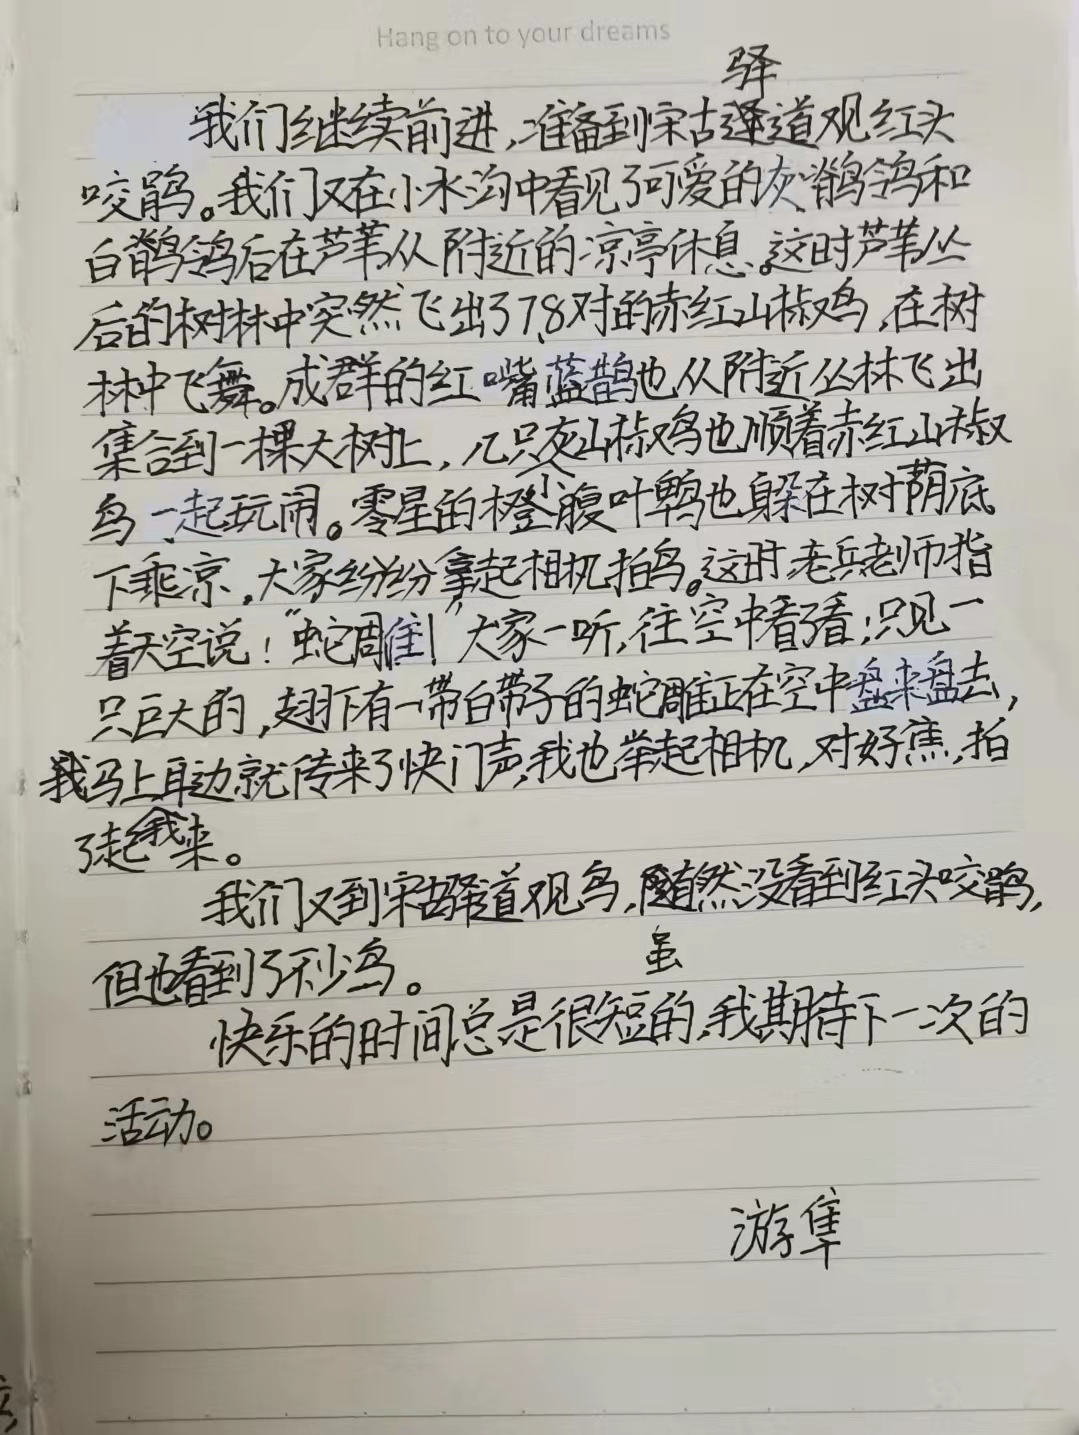 Hang on to your dreams
驿
我们继续前进,准备到宋古道观红头
咬鹃。我们又在小水沟中看见了可爱的灰鹡鸰和
白鹡鸰后在芦苇从附近的凉亭休息。这时芦苇丛
后的树林中突然飞出了7,8对的赤红山椒鸟,在树
林中飞舞。成群的红嘴蓝鹊也从附近丛林飞出
集合到一棵大树上,几只灰山椒鸡也顺着赤红山椒
鸟一起玩闹。零星的橙腹叶鹎也躲在树荫底
下乘凉,大家纷纷拿起相机拍鸟。这时老兵老师指
着天空说!“蛇雕!”大家一听,往空中看了看;只见一
只巨大的,翅下有一带白带子的蛇雕正在空中盘来盘去,
我马上耳边就传来了快门声,我也举起相机,对好焦,拍
了起我来。
我们又到宋古驿道观鸟,随然没看到红头咬鹃,
虽
但也看到了不少鸟。
快乐的时间总是很短的,我期待下一次的
活动。
游隼